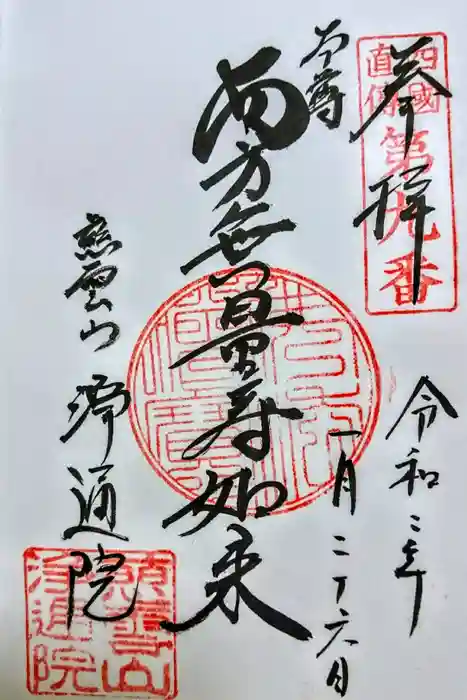 四國
直傳
第九番
奉拝
令和二年
一月二十六日
本尊
西方無量寿如来
雲山
浄通院
雲山
浄通院